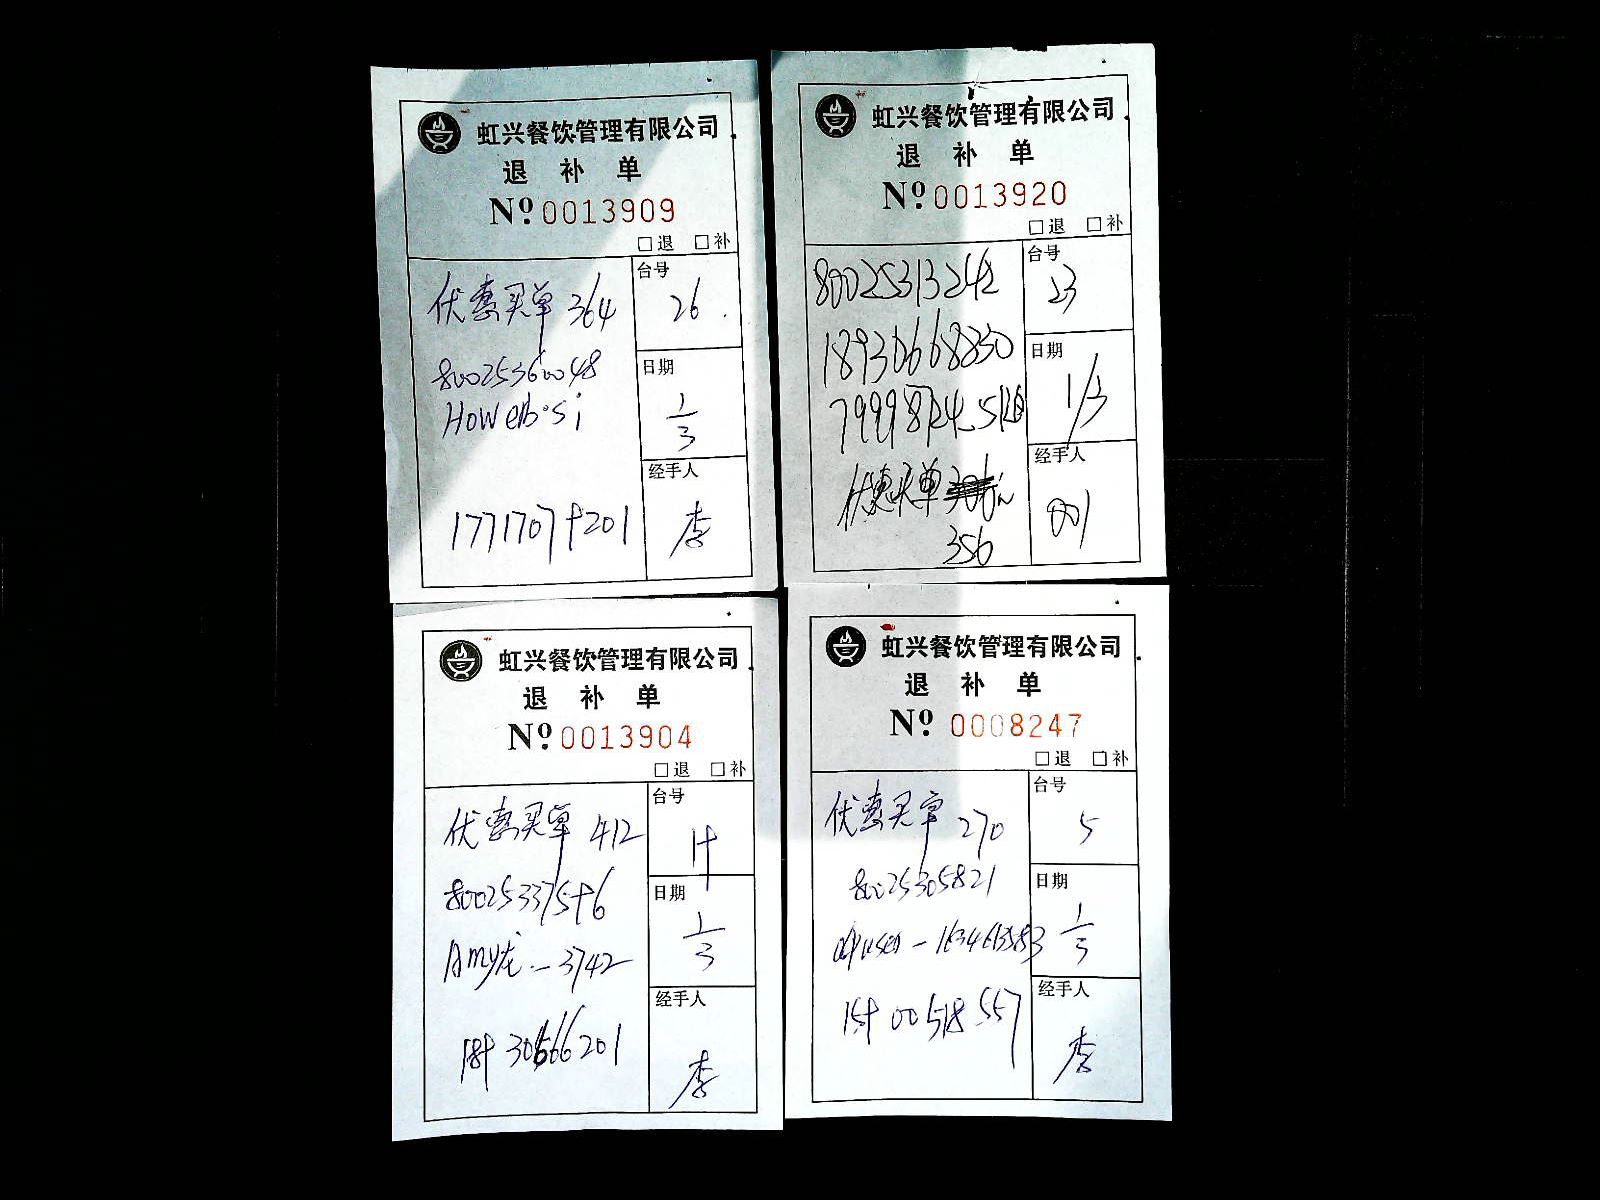 虹兴餐饮管理有限公司
退 补 单
Nº.0013909
□退 □补
伏惠买单 364
80025360048
台号
26
日期
1/3
17717079201
经手人
李
虹兴餐饮管理有限公司
退 补 单
Nº.0013920
□退 □补
80025313242
18930668830
优惠买单
356
台号
23
日期
1/3
经手人
001
虹兴餐饮管理有限公司
退 补 单
Nº.0013904
□退 □补
伏惠买单 412
Amy龙.-3742
台号
日期
1/3
经手人
李
虹兴餐饮管理有限公司
退 补 单
Nº. 0008247
□退 □补
伏惠买单 270
80025305821
台号
5
日期
1/3
经手人
李